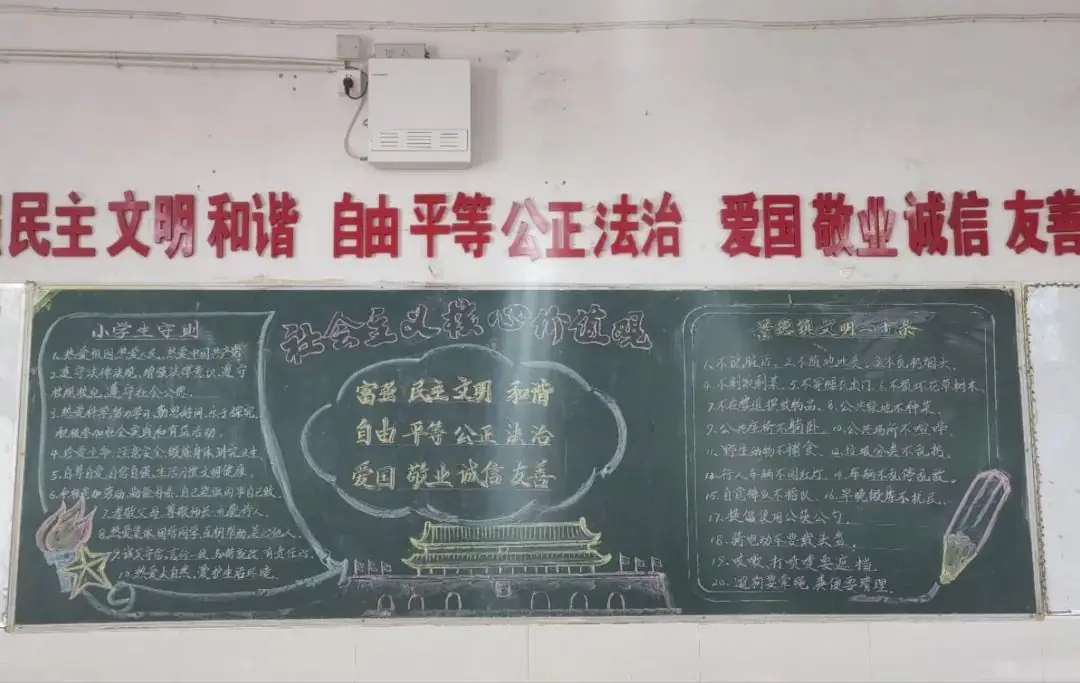 民主 文明 和谐 自由 平等 公正 法治 爱国 敬业 诚信 友善
小学生守则
1.热爱祖国,热爱人民,热爱中国共产党
2.遵守法律法规,增强法律意识,遵守
校规校纪,遵守社会公德.
3.热爱科学,努力学习,勤思好问,乐于探究,
积极参加社会实践和有益活动.
4.珍爱生命,注意安全,锻炼身体,讲究卫生.
5.自尊自爱,自信自强,生活习惯文明健康.
6.积极参加劳动,勤俭朴素,自己能做的事自己做.
7.孝敬父母,尊敬师长,礼貌待人.
8.热爱集体,团结同学,互相帮助,关心他人.
9.诚实守信,言行一致,知错就改,有责任心.
10.热爱大自然,爱护生活环境.
社会主义核心价值观
富强 民主 文明 和谐
自由 平等 公正 法治
爱国 敬业 诚信 友善
景德镇文明二十条
1.不说脏话. 2.不随地吐痰. 3.不乱扔烟头.
4.不剩饭剩菜. 5.不穿睡衣出门. 6.不损坏花草树木.
7.不在管道摆放物品. 8.公共绿地不种菜.
9.公共座椅不躺卧. 10.公共场所不喧哗.
11.野生动物不捕食. 12.垃圾分类不乱扔.
13.行人车辆不闯红灯. 14.车辆不乱停乱放.
15.自觉排队不插队. 16.早晚锻炼不扰民.
17.提倡使用公筷公勺.
18.骑电动车要戴头盔.
19.咳嗽、打喷嚏要遮挡.
20.遛狗要牵绳,粪便要清理.